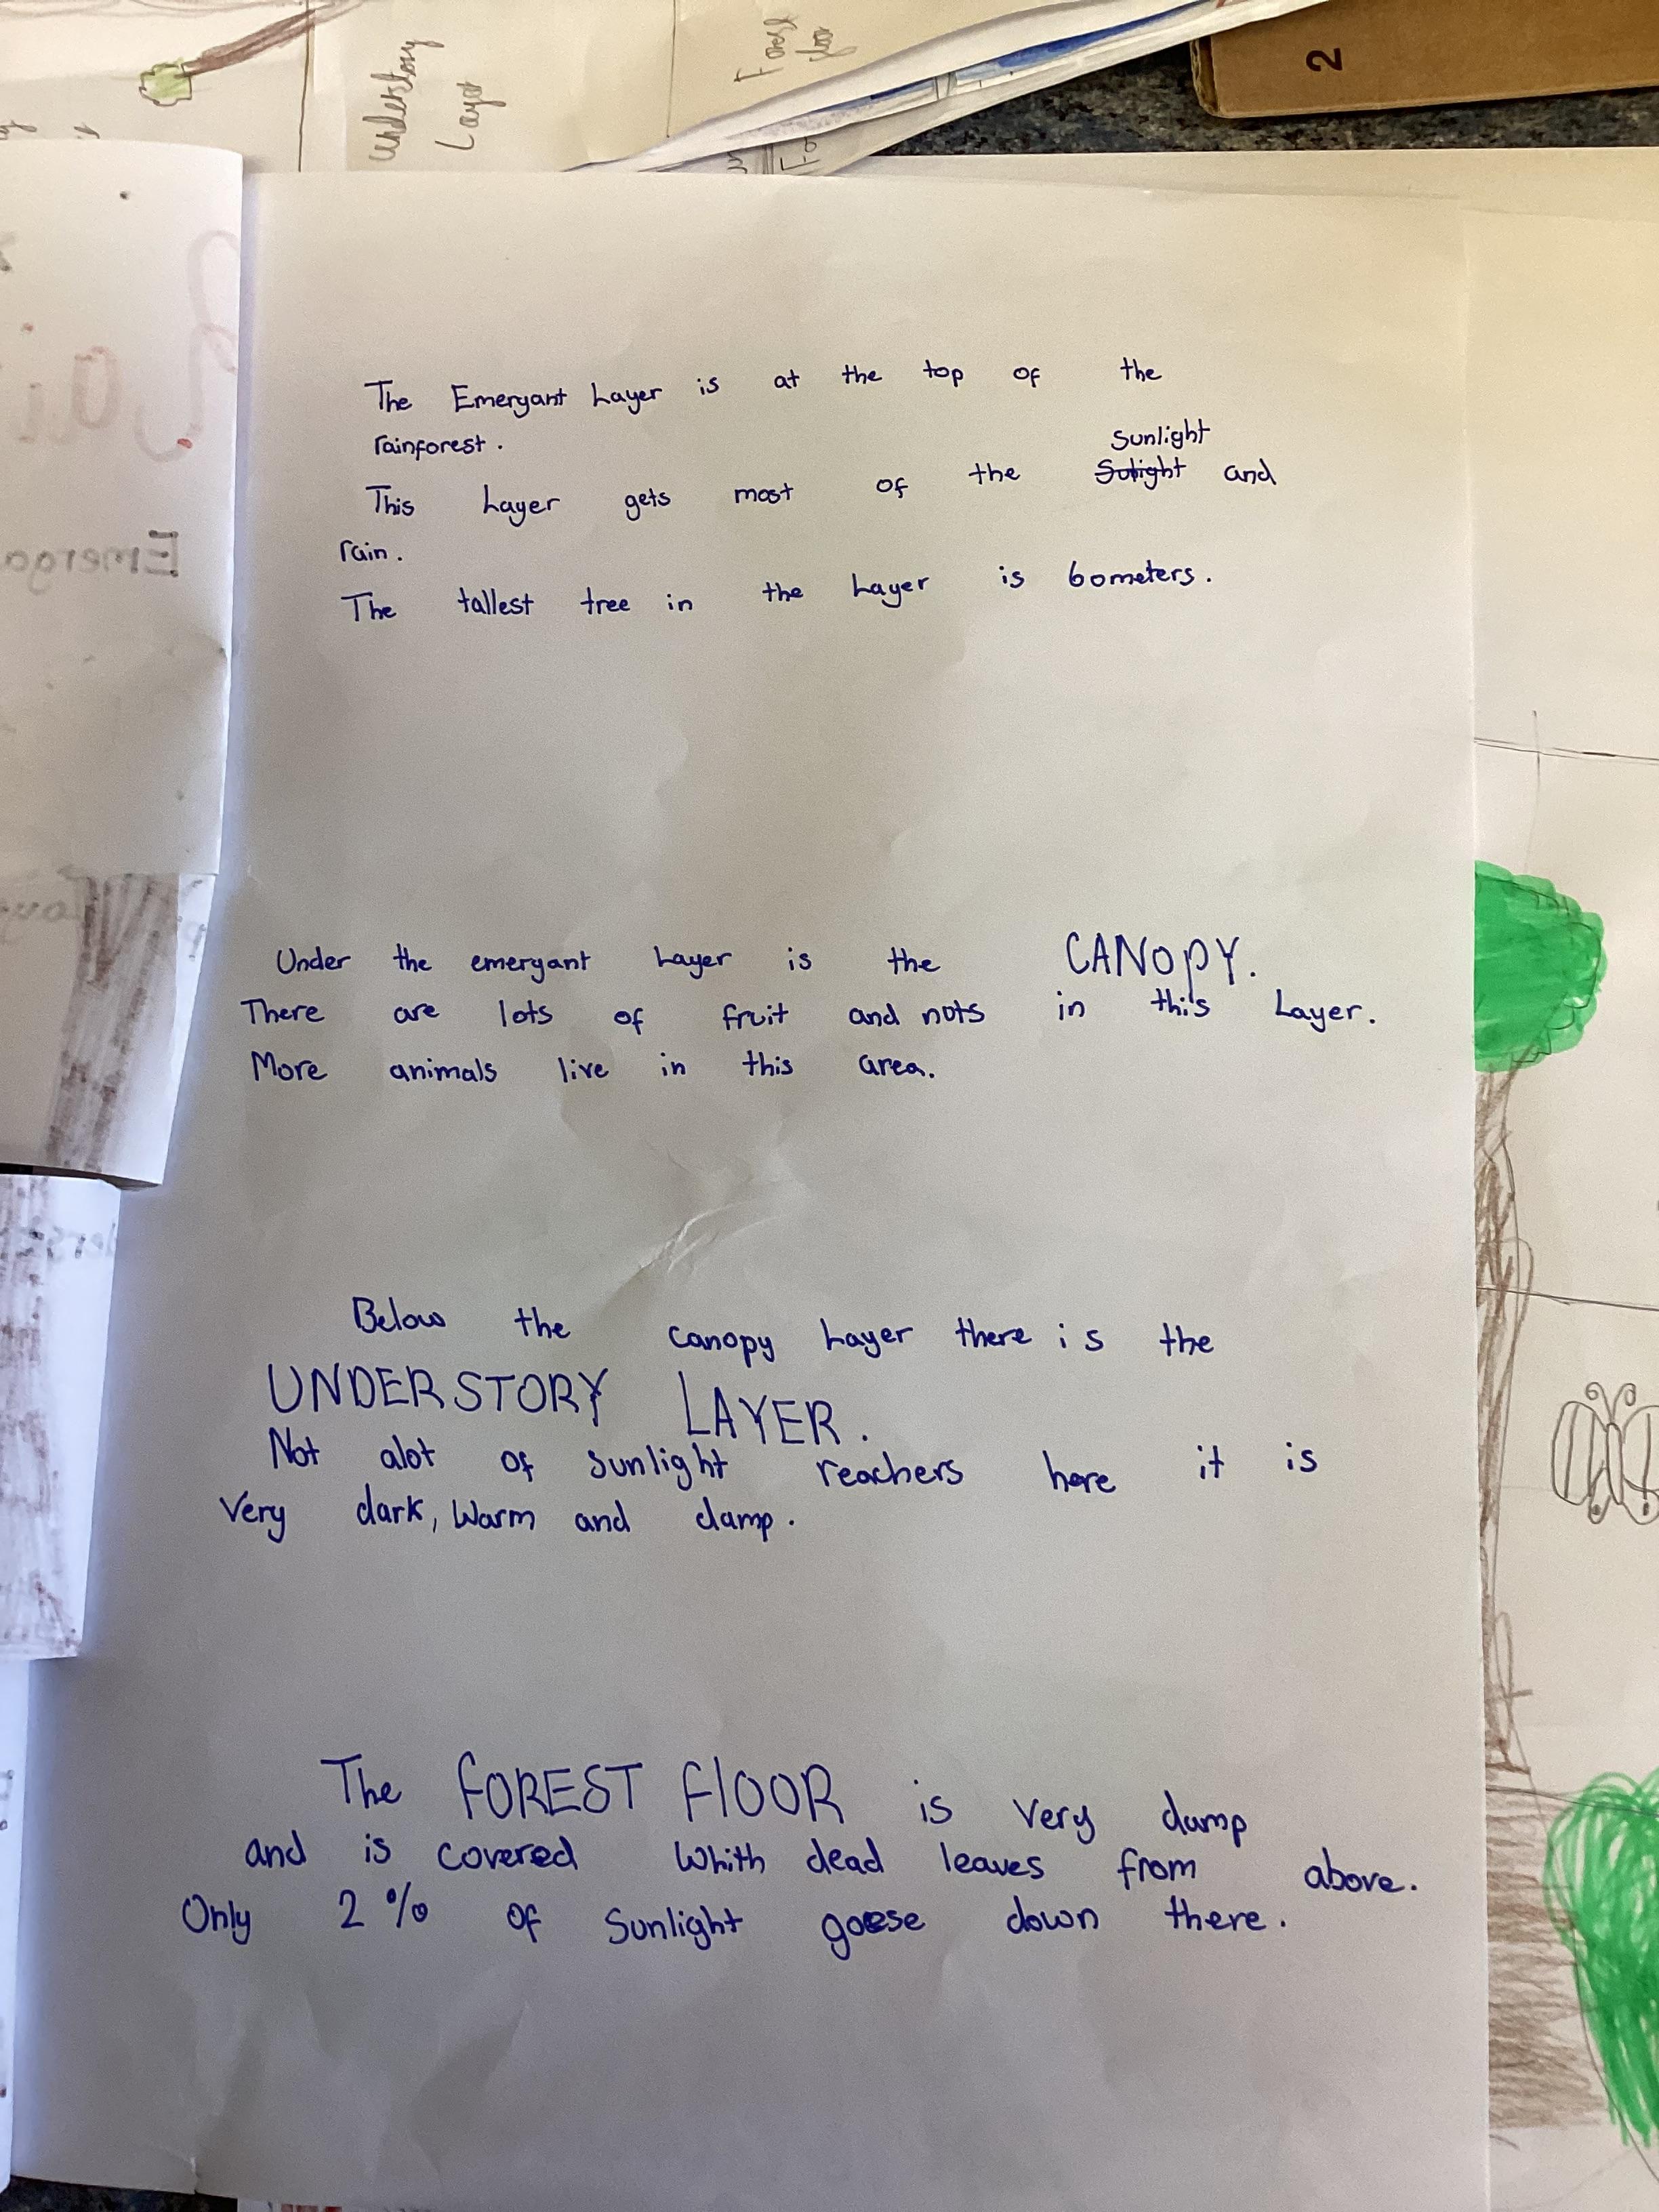 understory
Layer
Forest
floor
2
The Emergant Layer is at the top of the
rainforest.
Sunlight
This Layer gets most of the and
rain.
The tallest tree in the Layer is 60meters.
Emerga
Under the emergant Layer is the CANOPY.
There are lots of fruit and nuts in this Layer.
More animals live in this area.
Below the canopy Layer there is the
UNDERSTORY LAYER.
Not alot of sunlight reachers here it is
Very dark, Warm and damp.
The FOREST FlOOR is very damp
and is covered Whith dead leaves from above.
Only 2% of Sunlight goese down there.